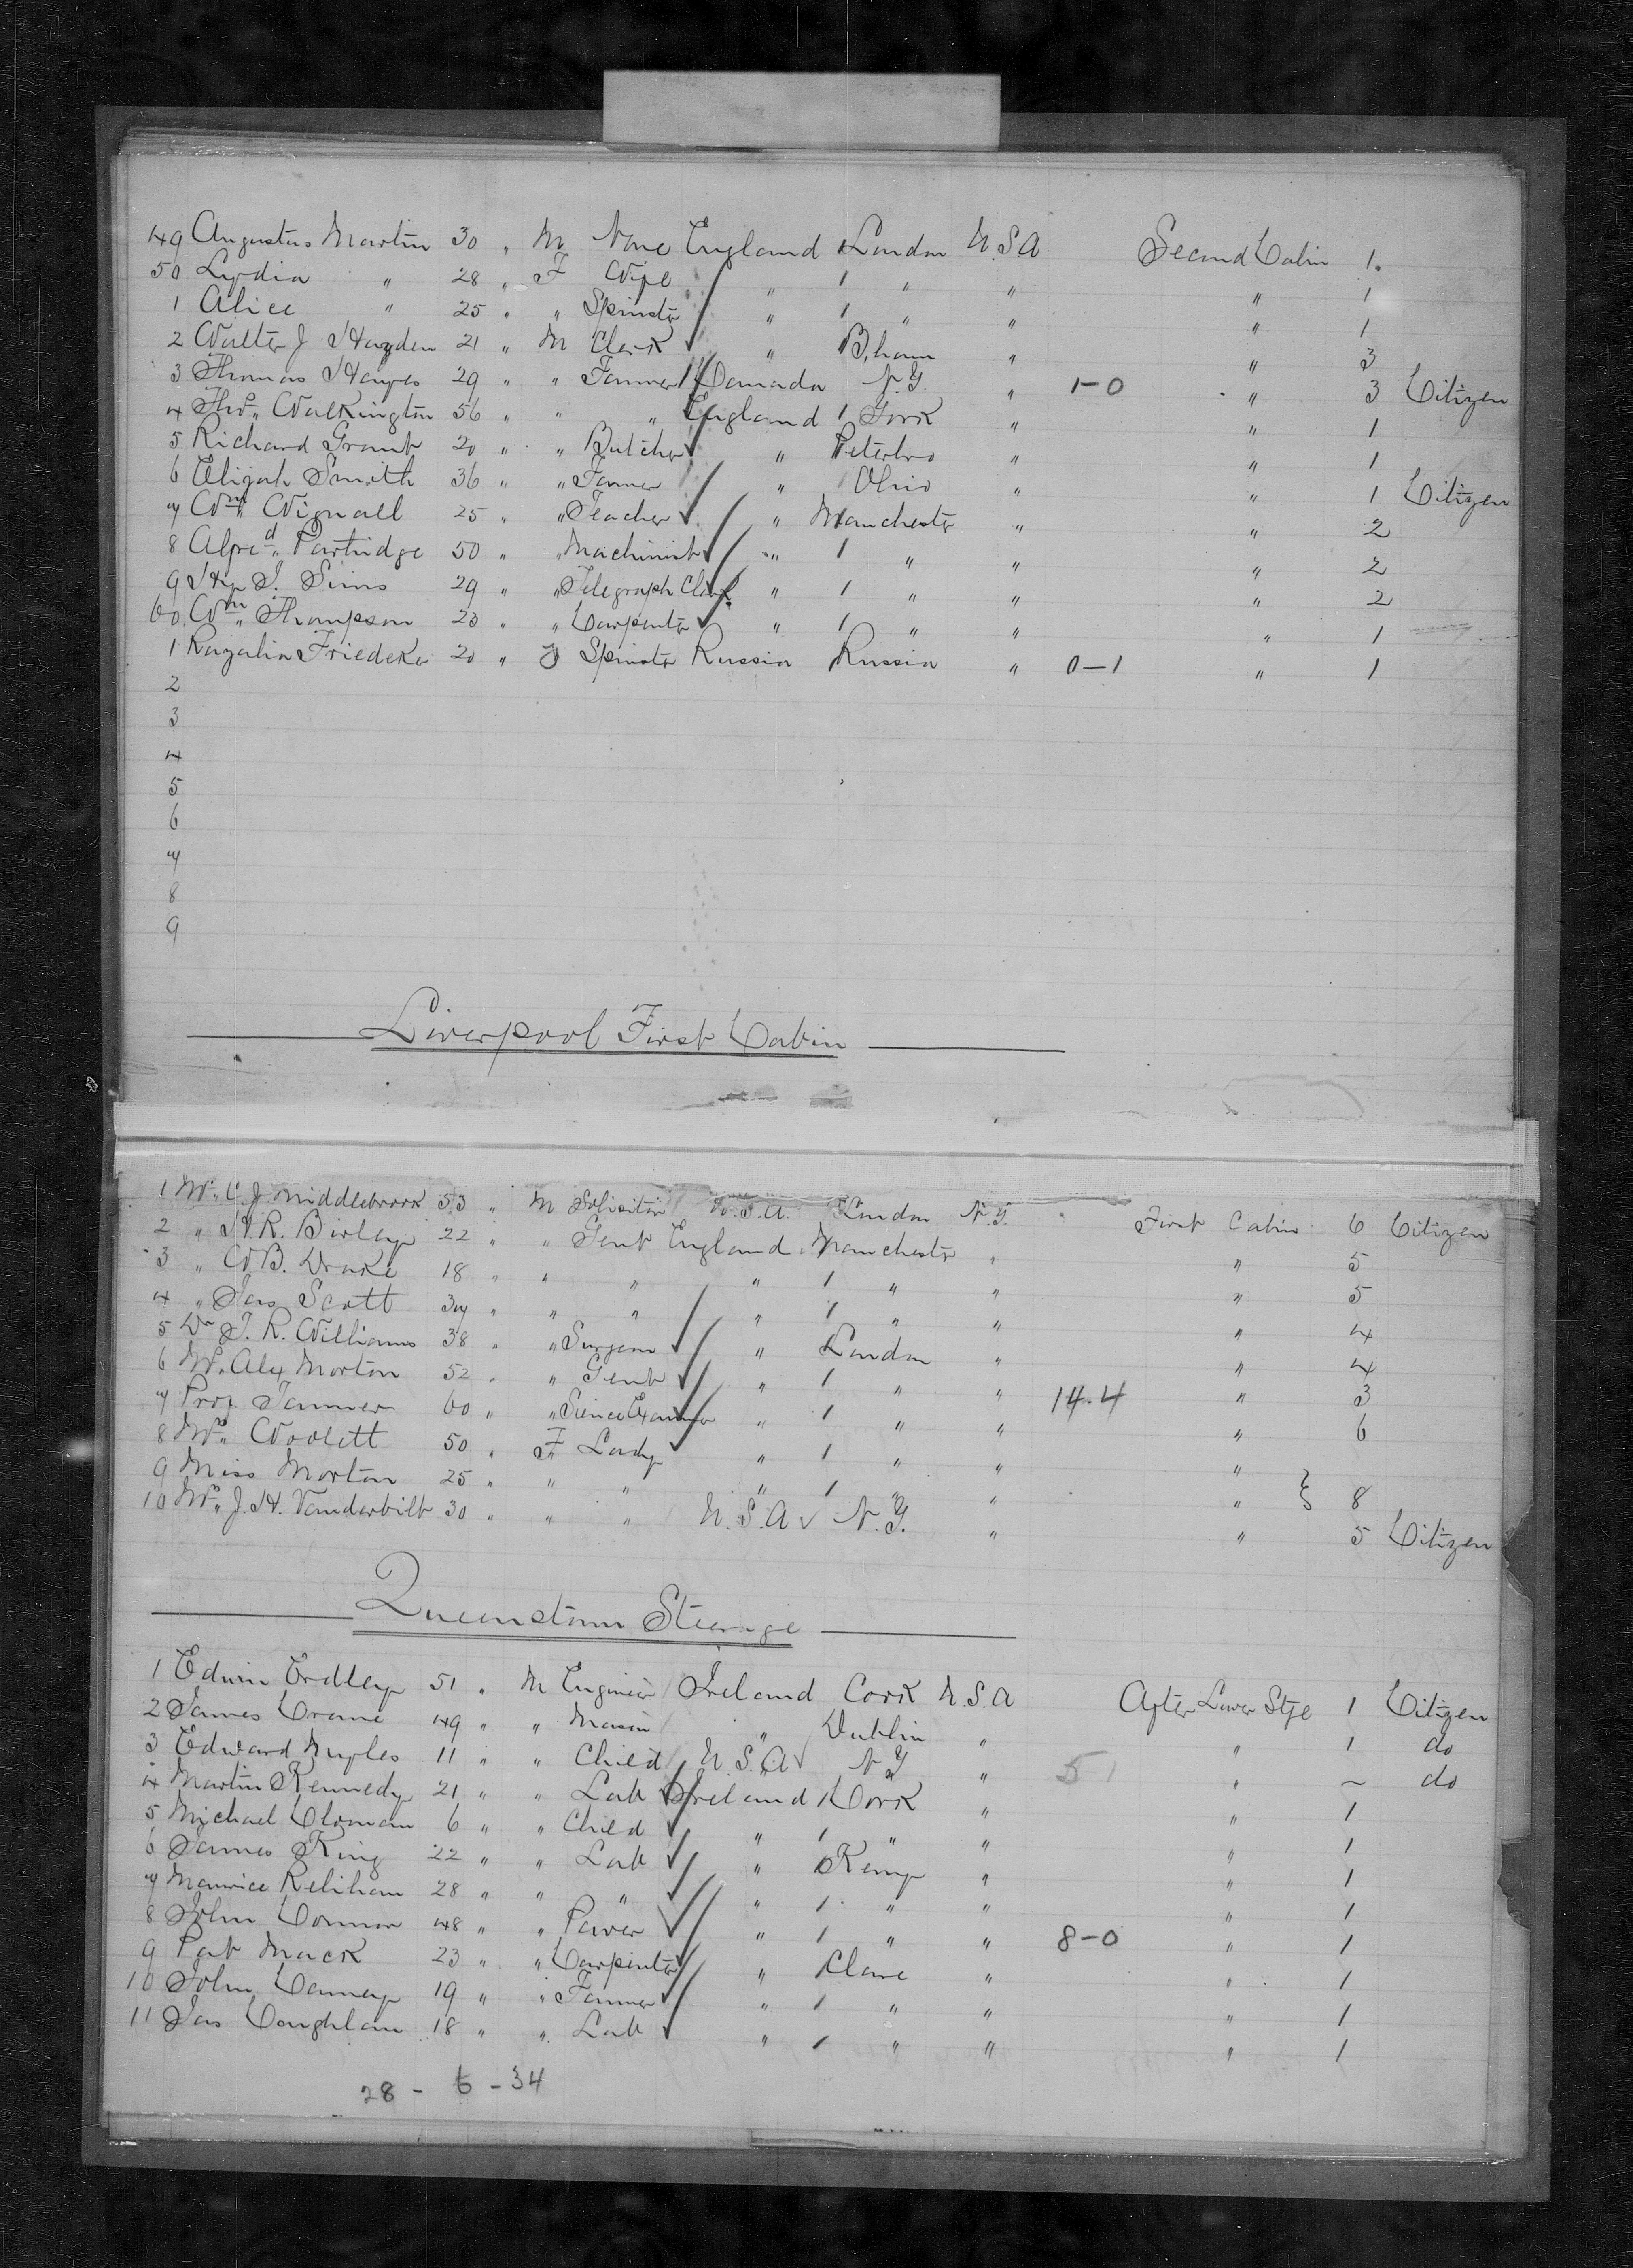 49 Augustus Martin 30 " M None England London U.S.A Second Cabin 1.
50 Lydia " 28 " F Wife " 1 " " " 1
1 Alice " 25 " " Spinster " 1 " " " 1
2 Walter J Hayden 21 " M Clerk " B,ham " " 3
3 Thomas Hayes 29 " " Farmer Canada N.Y. " 1-0 " 3 Citizen
4 Thos. Walkington 56 " " " England 1 York " " 1
5 Richard Grant 20 " " Butcher " Peterbro " " 1
6 Elijah Smith 36 " " Farmer " Ohio " " 1 Citizen
7 Wm. Wignall 25 " " Teacher " Manchester " " 2
8 Alfred. Partridge 50 " " Machinist " 1 " " " 2
9 Hy J. Sims 29 " " Telegraph Clerk " 1 " " " 2
60 Wm. Thompson 23 " " Carpenter " 1 " " " 1
1 Friedeke 20 " F Spinster Russia Russia " 0-1 " 1
2
3
4
5
6
7
8
9
Liverpool First Cabin
1 Mr. C J. Middlebrook 53 " M Solicitor U.S.A. London N.Y. First Cabin 6 Citizen
2 " H.R. Birley 22 " " Gent England Manchester " " 5
3 " W B. Drake 18 " " " " 1 " " " 5
4 " Jas Scott 37 " " " " 1 " " " 4
5 Dr J. R. Williams 38 " " Surgeon " London " " 4
6 Mr. Alex Morton 52 " " Gent " 1 " " 14-4 " 3
7 Prof Tanner 60 " " Science Examiner " 1 " " " 6
8 Mrs. Woolett 50 " F Lady " 1 " " "
9 Miss Morton 25 " " " " 1 " " " 8
10 Mrs. J. H. Vanderbilt 30 " " " U.S.A N.Y. " " 5 Citizen
Queenstown Steerage
1 Edwin Erdley 51 " M Engineer Ireland Cork U.S.A After Lower Stge 1 Citizen
2 James Crane 49 " " Mason " Dublin " " 1 do
3 Edward 11 " " Child U.S.A N Y " 51 " ~ do
4 Martin Kennedy 21 " " Lab Ireland Cork " " 1
5 Michael Cloman 6 " " Child " 1 " " " 1
6 James King 22 " " Lab " Kerry " " 1
7 Maurice Relihan 28 " " " " 1 " " " 1
8 John Connor 48 " " Paver " 1 " " 8-0 " 1
9 Pat Mack 23 " " Carpenter " Clare " " 1
10 John Canney 19 " " Farmer " 1 " " " 1
11 Jas Coughlan 18 " " Lab " 1 " " " 1
28 - 6 - 34